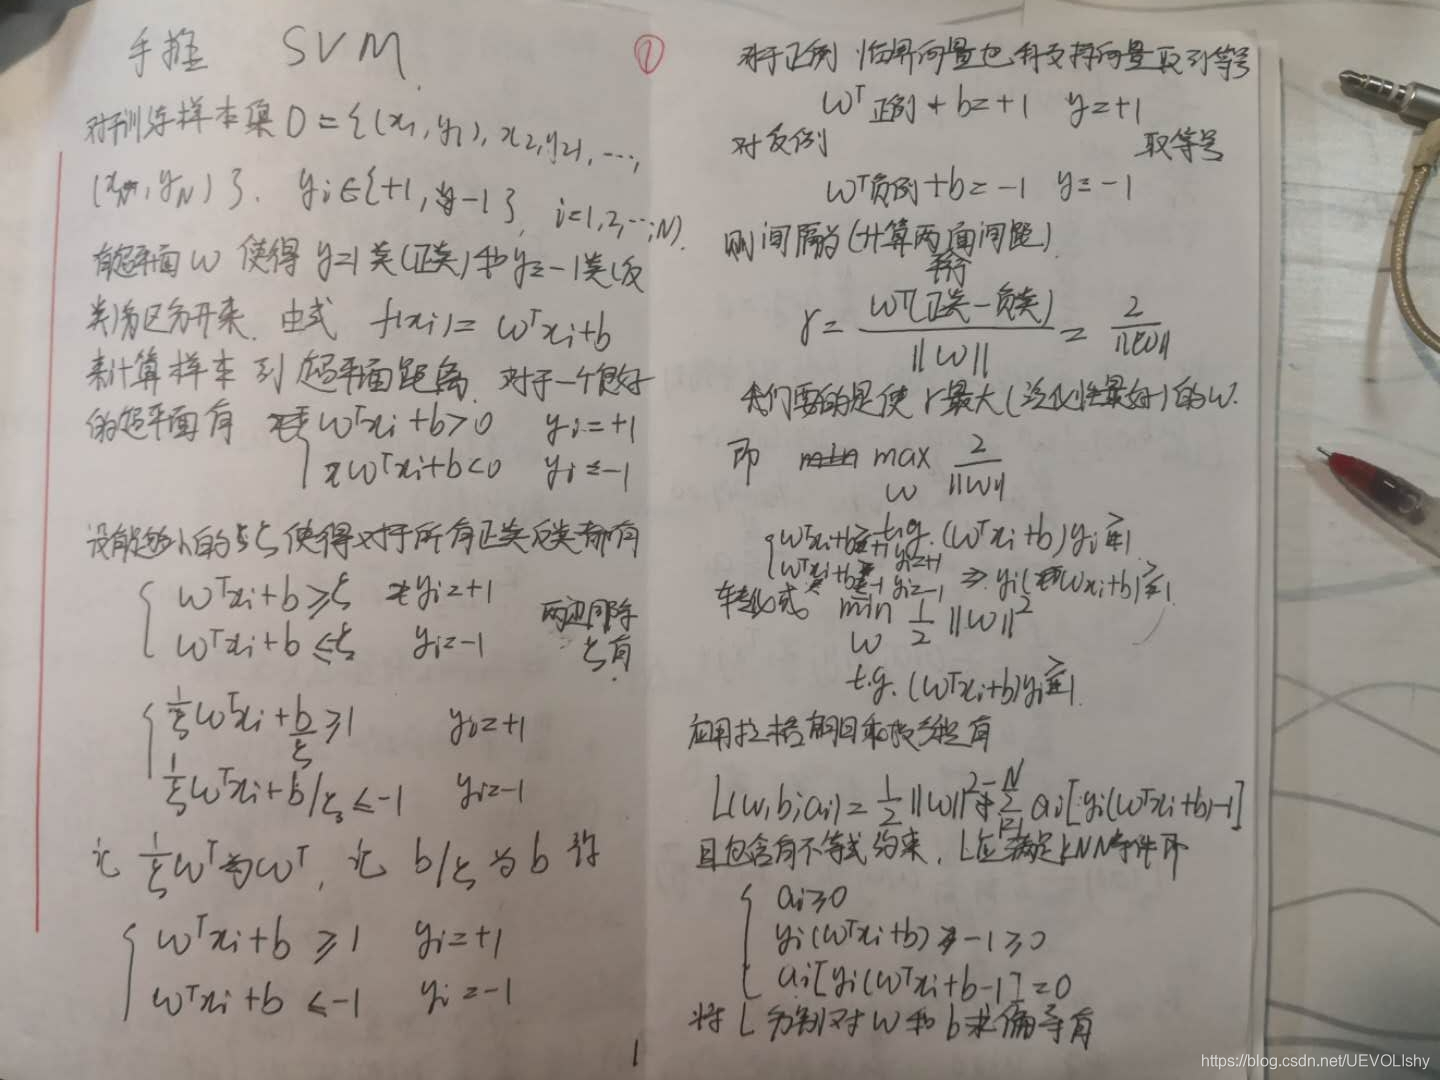 手推 SVM
①
对于训练样本集 D = {(x₁, y₁), x₂, y₂, ...,
(x_N, y_N)}. yᵢ∈{+1, -1}, i=1,2,...,N).
有超平面 w 使得 y=1类(正类)和y=-1类(反
类)分区分开来. 由式 f(xᵢ) = wᵀxᵢ+b
来计算样本到超平面距离. 对于一个很好
的超平面有 { wᵀxᵢ+b>0 yᵢ=+1
wᵀxᵢ+b<0 yᵢ=-1
设有足够小的 ξ 使得对于所有正类反类都有
{ wᵀxᵢ+b ≥ξ yᵢ=+1
wᵀxᵢ+b ≤-ξ yᵢ=-1
两边同除
ξ有
{ 1/ξ wᵀxᵢ + b/ξ ≥1 yᵢ=+1
1/ξ wᵀxᵢ+b/ξ ≤-1 yᵢ=-1
记 1/ξ wᵀ为wᵀ, 记 b/ξ 为 b 得
{ wᵀxᵢ+b ≥1 yᵢ=+1
wᵀxᵢ+b ≤-1 yᵢ=-1
1
对于正例 临界向量也叫支持向量取到等号
wᵀ正例 + b=+1 y=+1
对反例 取等号
wᵀ负例+b=-1 y=-1
则间隔为(计算两平行面间距)
γ= wᵀ(正类-负类) / ||w|| = 2 / ||w||
我们要的是使 γ最大(泛化性最好)的w.
即 max 2/||w||
w
t.g. (wᵀxᵢ+b)yᵢ≥1
{ wᵀxᵢ+b≥+1 yᵢ=+1
wᵀxᵢ+b≤-1 yᵢ=-1 ⇒ yᵢ(wxᵢ+b)≥1
转化式 min 1/2 ||w||²
w
t.g. (wᵀxᵢ+b)yᵢ≥1
应用拉格朗日乘数法有
L(w,b,aᵢ)= 1/2||w||² - Σ(i=1..N) aᵢ[yᵢ(wᵀxᵢ+b)-1]
且包含有不等式约束, L应满足KNN条件即
{ aᵢ≥0
yᵢ(wᵀxᵢ+b) -1≥0
aᵢ[yᵢ(wᵀxᵢ+b-1]=0
将 L 分别对 w 和 b 求偏导有
https://blog.csdn.net/UEVOLIshy